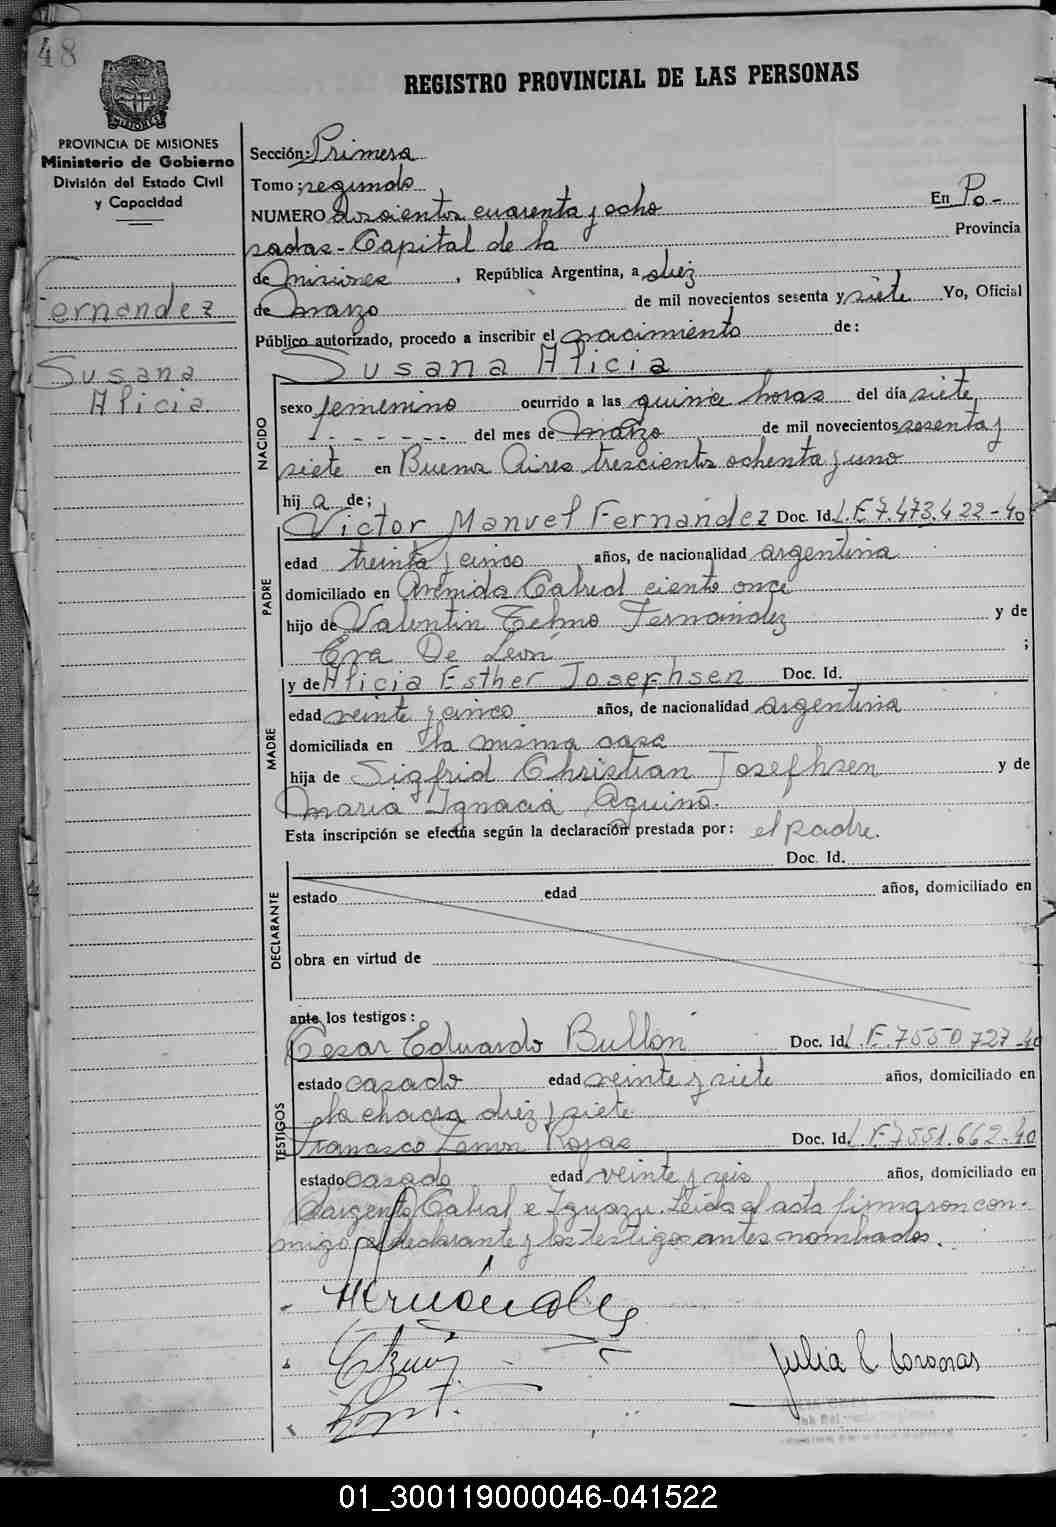 48
REGISTRO PROVINCIAL DE LAS PERSONAS
MISIONES
PROVINCIA DE MISIONES
Ministerio de Gobierno
División del Estado Civil
y Capacidad
Fernandez
Susana
Alicia
Sección: Primera
Tomo: segundo
NUMERO doscientos cuarenta y ocho En Po-
sadas - Capital de la Provincia
de Misiones, República Argentina, a diez
de marzo de mil novecientos sesenta y siete Yo, Oficial
Público autorizado, procedo a inscribir el nacimiento de:
Susana Alicia
NACIDO
sexo femenino ocurrido a las quince horas del día siete
- - - - - - - del mes de Marzo de mil novecientos sesenta y
siete en Buenos Aires trescientos ochenta y uno
hija de;
Victor Manuel Fernández Doc. Id. L.E 7.473.422-40
PADRE
edad treinta y cinco años, de nacionalidad argentina
domiciliado en Avenida Cabral ciento once
hijo de Valentin Telmo Fernández y de
Eva De León ;
y de Alicia Esther Josephsen Doc. Id.
MADRE
edad veinte y cinco años, de nacionalidad argentina
domiciliada en la misma casa
hija de Sigfrid Christian Josephsen y de
Maria Ignacia Aquino.
Esta inscripción se efectúa según la declaración prestada por: el padre.
Doc. Id.
DECLARANTE
estado edad años, domiciliado en
obra en virtud de
ante los testigos:
Cesar Eduardo Bullón Doc. Id. L.E. 7550727-40
TESTIGOS
estado casado edad veinte y siete años, domiciliado en
la chacra diez y siete
Francisco Rojas Doc. Id. L.E 7551.662-40
estado casado edad veinte y seis años, domiciliado en
Sargento Cabral e Iguazu. Leida el acta firmaron con-
migo el declarante y los testigos antes nombrados.
Julia C. Coronas
01_300119000046-041522